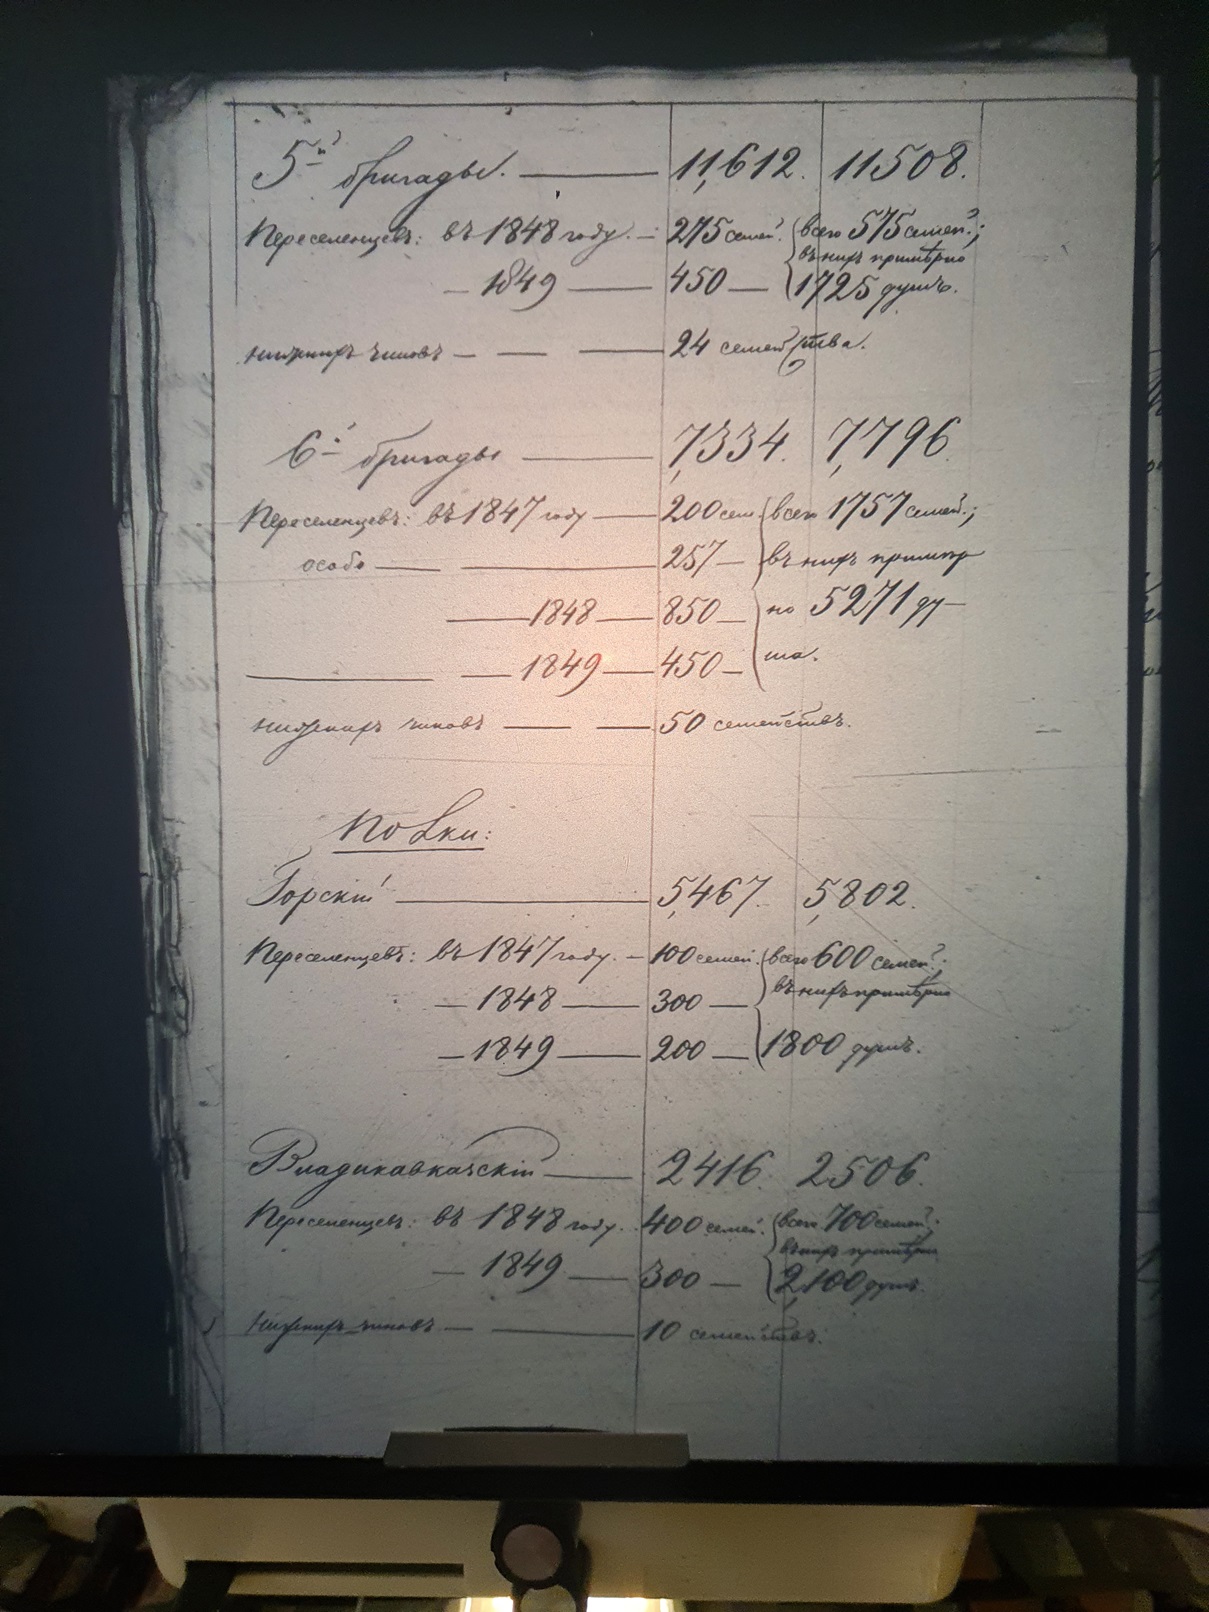 5й бригады. — 11,612. 11508.
Переселенцевъ: въ 1848 году. — 275 семей. всего 575 семей;
въ нихъ примѣрно
— 1849 — 450 — 1725 душъ.
нижнихъ чиновъ — — — 24 семейства.
6й бригады — 7,334. 7,796.
Переселенцевъ: въ 1847 году — 200 сем. всего 1757 семей;
особо — — 257 — въ нихъ примѣр
— 1848 — 850 — но 5271 ду—
— — 1849 — 450 — ша.
нижнихъ чиновъ — — 50 семействъ.
Полки:
Горскій — 5,467. 5,802.
Переселенцевъ: въ 1847 году. — 100 семей. всего 600 семей;
въ нихъ примѣрно
— 1848 — 300 —
— 1849 — 200 — 1800 душъ.
Владикавказскій — 2416. 2506.
Переселенцевъ: въ 1848 году. 400 семей. всего 700 семей;
въ нихъ примѣрно
— 1849 — 300 — 2,100 душъ.
Нижнихъ чиновъ — — 10 семействъ.